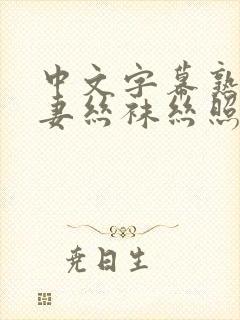 中文字幕熟
妻丝袜丝照
尭日生